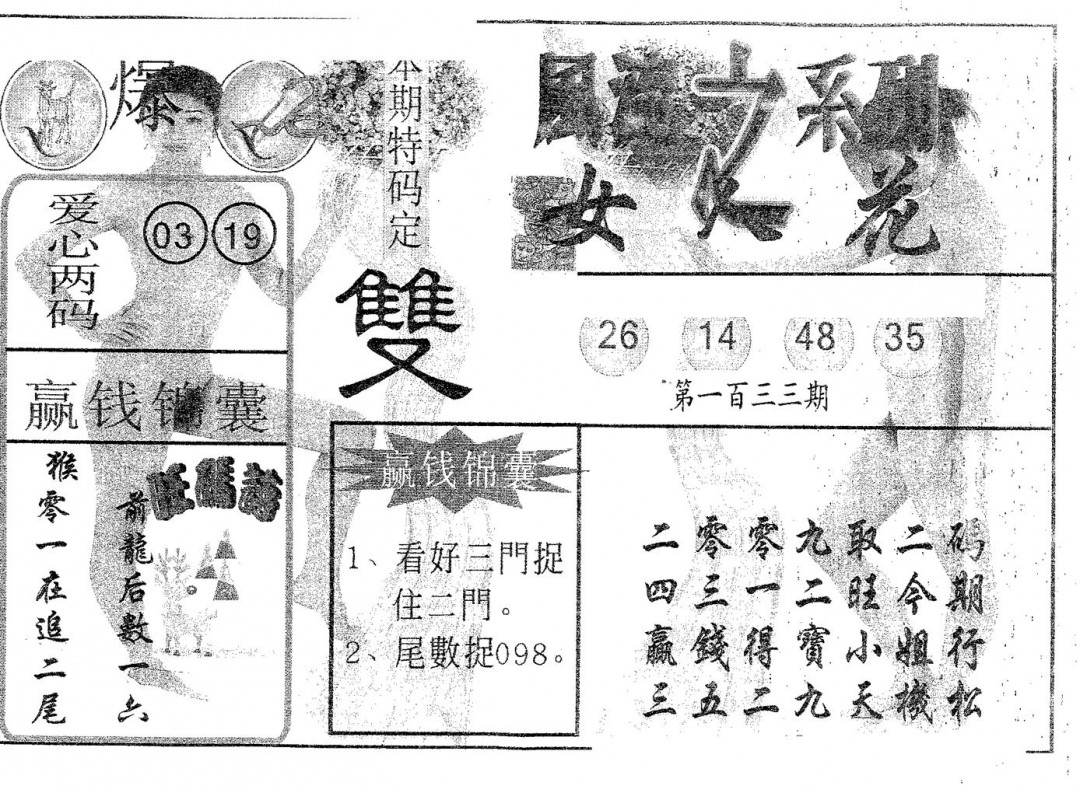 爆
本期特码定
雙
系列
女人花
爱心两码
03 19
26 14 48 35
第一百三三期
赢钱锦囊
前龍后數一六
猴零一在追二尾
赢钱锦囊
1、看好三門捉
住二門。
2、尾數捉098。
二零零九取二码
四三一二旺今期
赢錢得寶小姐行
三五二九天機松